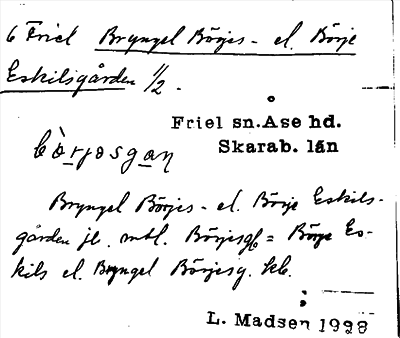 6 Friel Bryngel Börjes- el. Börje
Eskilsgården 1/2.
Friel sn. Ase hd.
Skarab. län
bò̀rjosgaɳ
Bryngel Börjes- el. Börje Eskils-
gården jb. mtl. Börjesg = Börje Es-
kils el. Bryngel Börjesg. kb.
L. Madsen 1928